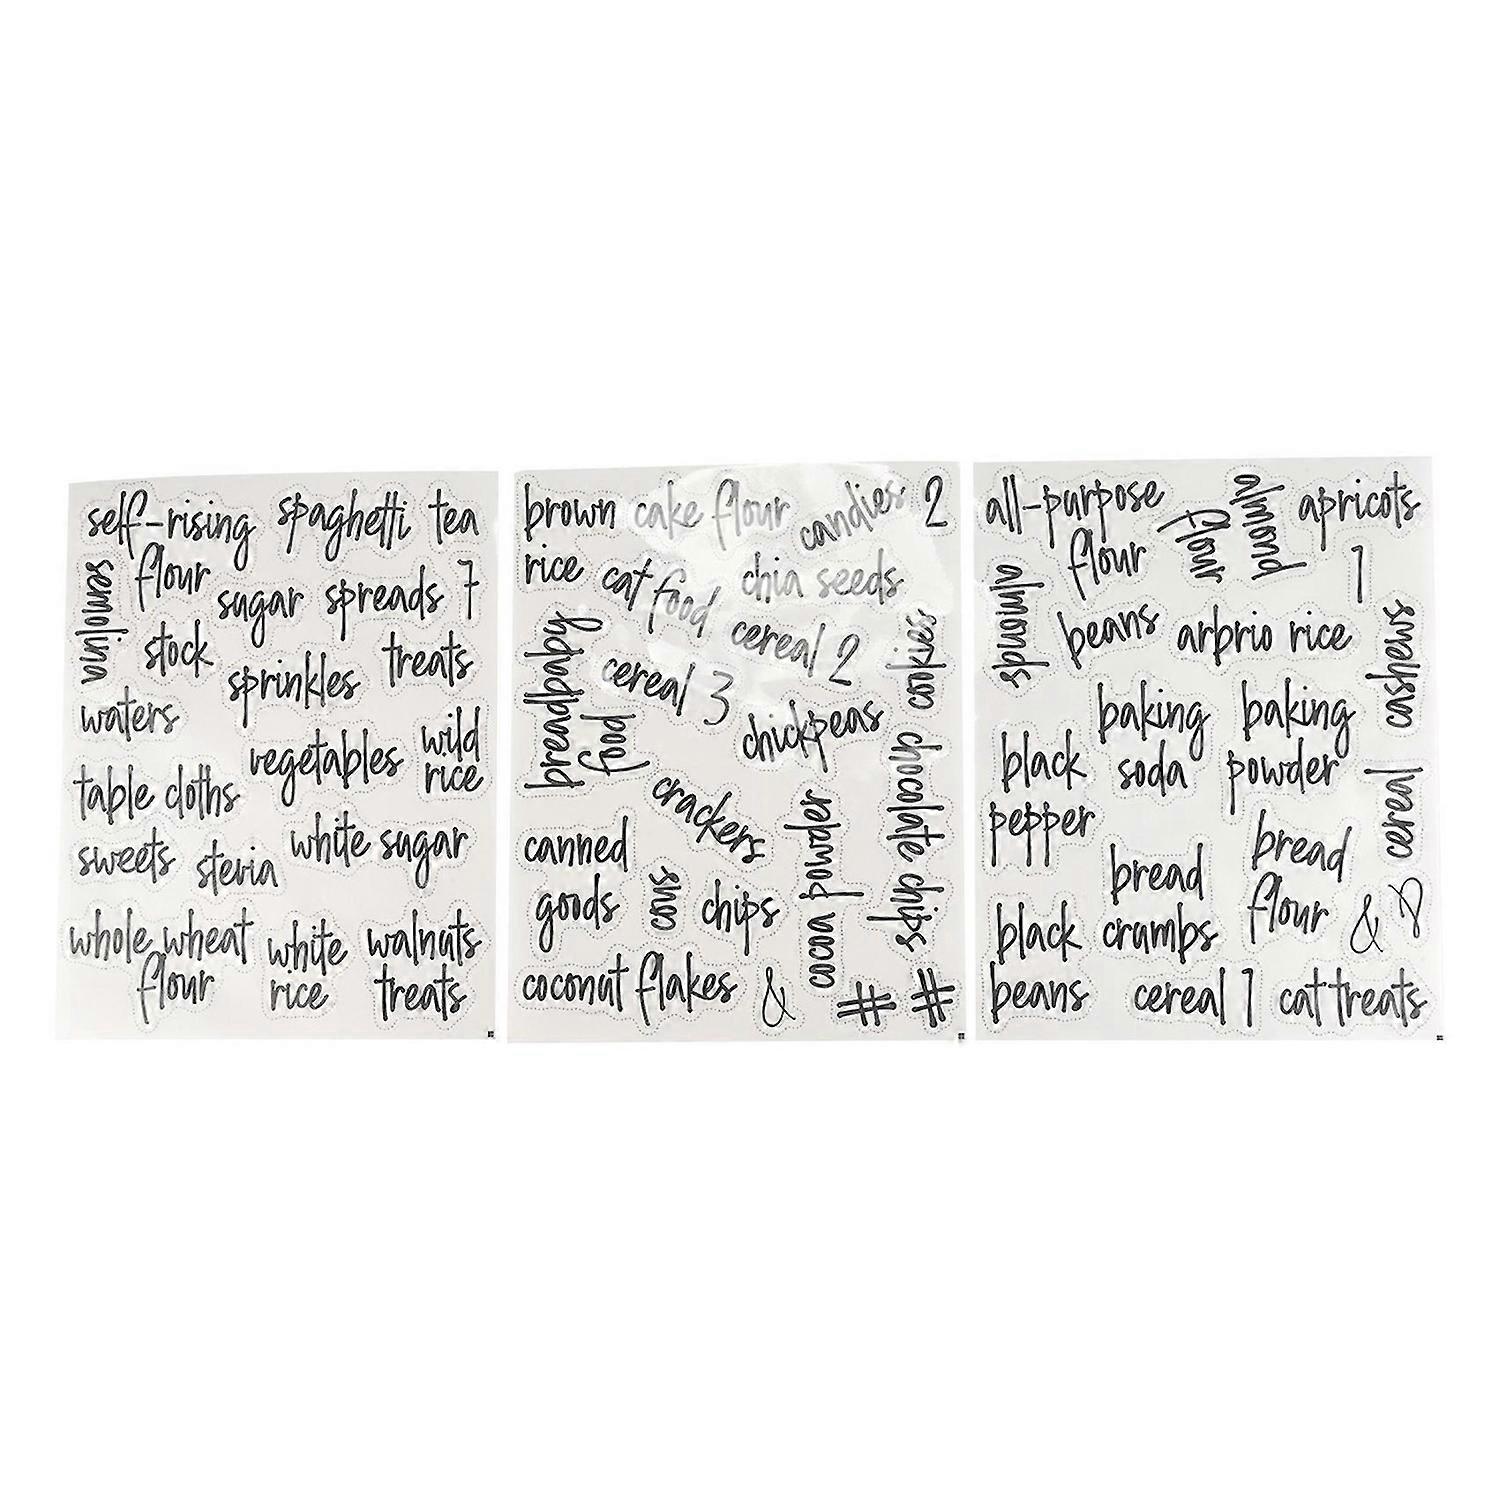 self-rising
flour
spaghetti
tea
semolina
sugar
spreads
7
stock
sprinkles
treats
waters
vegetables
wild
rice
table cloths
white sugar
sweets
stevia
whole wheat
flour
white
rice
walnuts
treats
brown
rice
cake flour
candies
2
cat food
chia seeds
cereal 2
cookies
breadpbaby
food
cereal 3
chickpeas
chocolate chips
crackers
cocoa powder
canned
goods
cous
chips
coconut flakes
&
#
#
all-purpose
flour
almond
flour
apricots
1
almonds
beans
arbrio rice
cashews
baking
soda
baking
powder
black
pepper
cereal
bread
crumbs
bread
flour
&
black
beans
cereal 1
cat treats